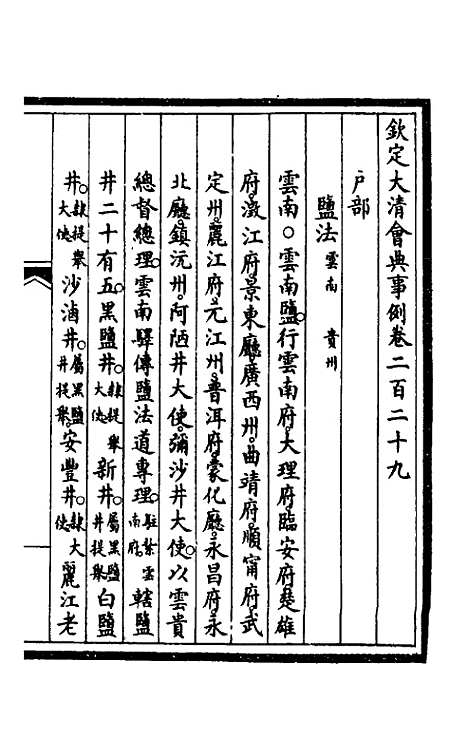 欽定大清會典事例卷二百二十九
戶部
鹽法雲南 貴州
雲南○雲南鹽行雲南府大理府臨安府楚雄
府澂江府景東廳廣西州曲靖府順甯府武
定州麗江府元江州普洱府蒙化廳永昌府永
北廳鎮沅州阿陋井大使彌沙井大使以雲貴
總督總理雲南驛傳鹽法道專理駐紮雲南府轄鹽
井二十有五黑鹽井隸提舉大使新井屬黑鹽井提舉白鹽
井隸提舉大使沙滷井屬黑鹽井提舉安豐井隸大使麗江老